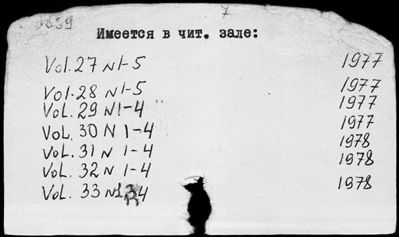 7
Имеется в чит. зале:
Vol. 27 N 1-5 1977
Vol. 28 N 1-5 1977
Vol. 29 N 1-4 1977
Vol. 30 N 1-4 1977
Vol. 31 N 1-4 1978
Vol. 32 N 1-4 1978
Vol. 33 N 1-4 1978